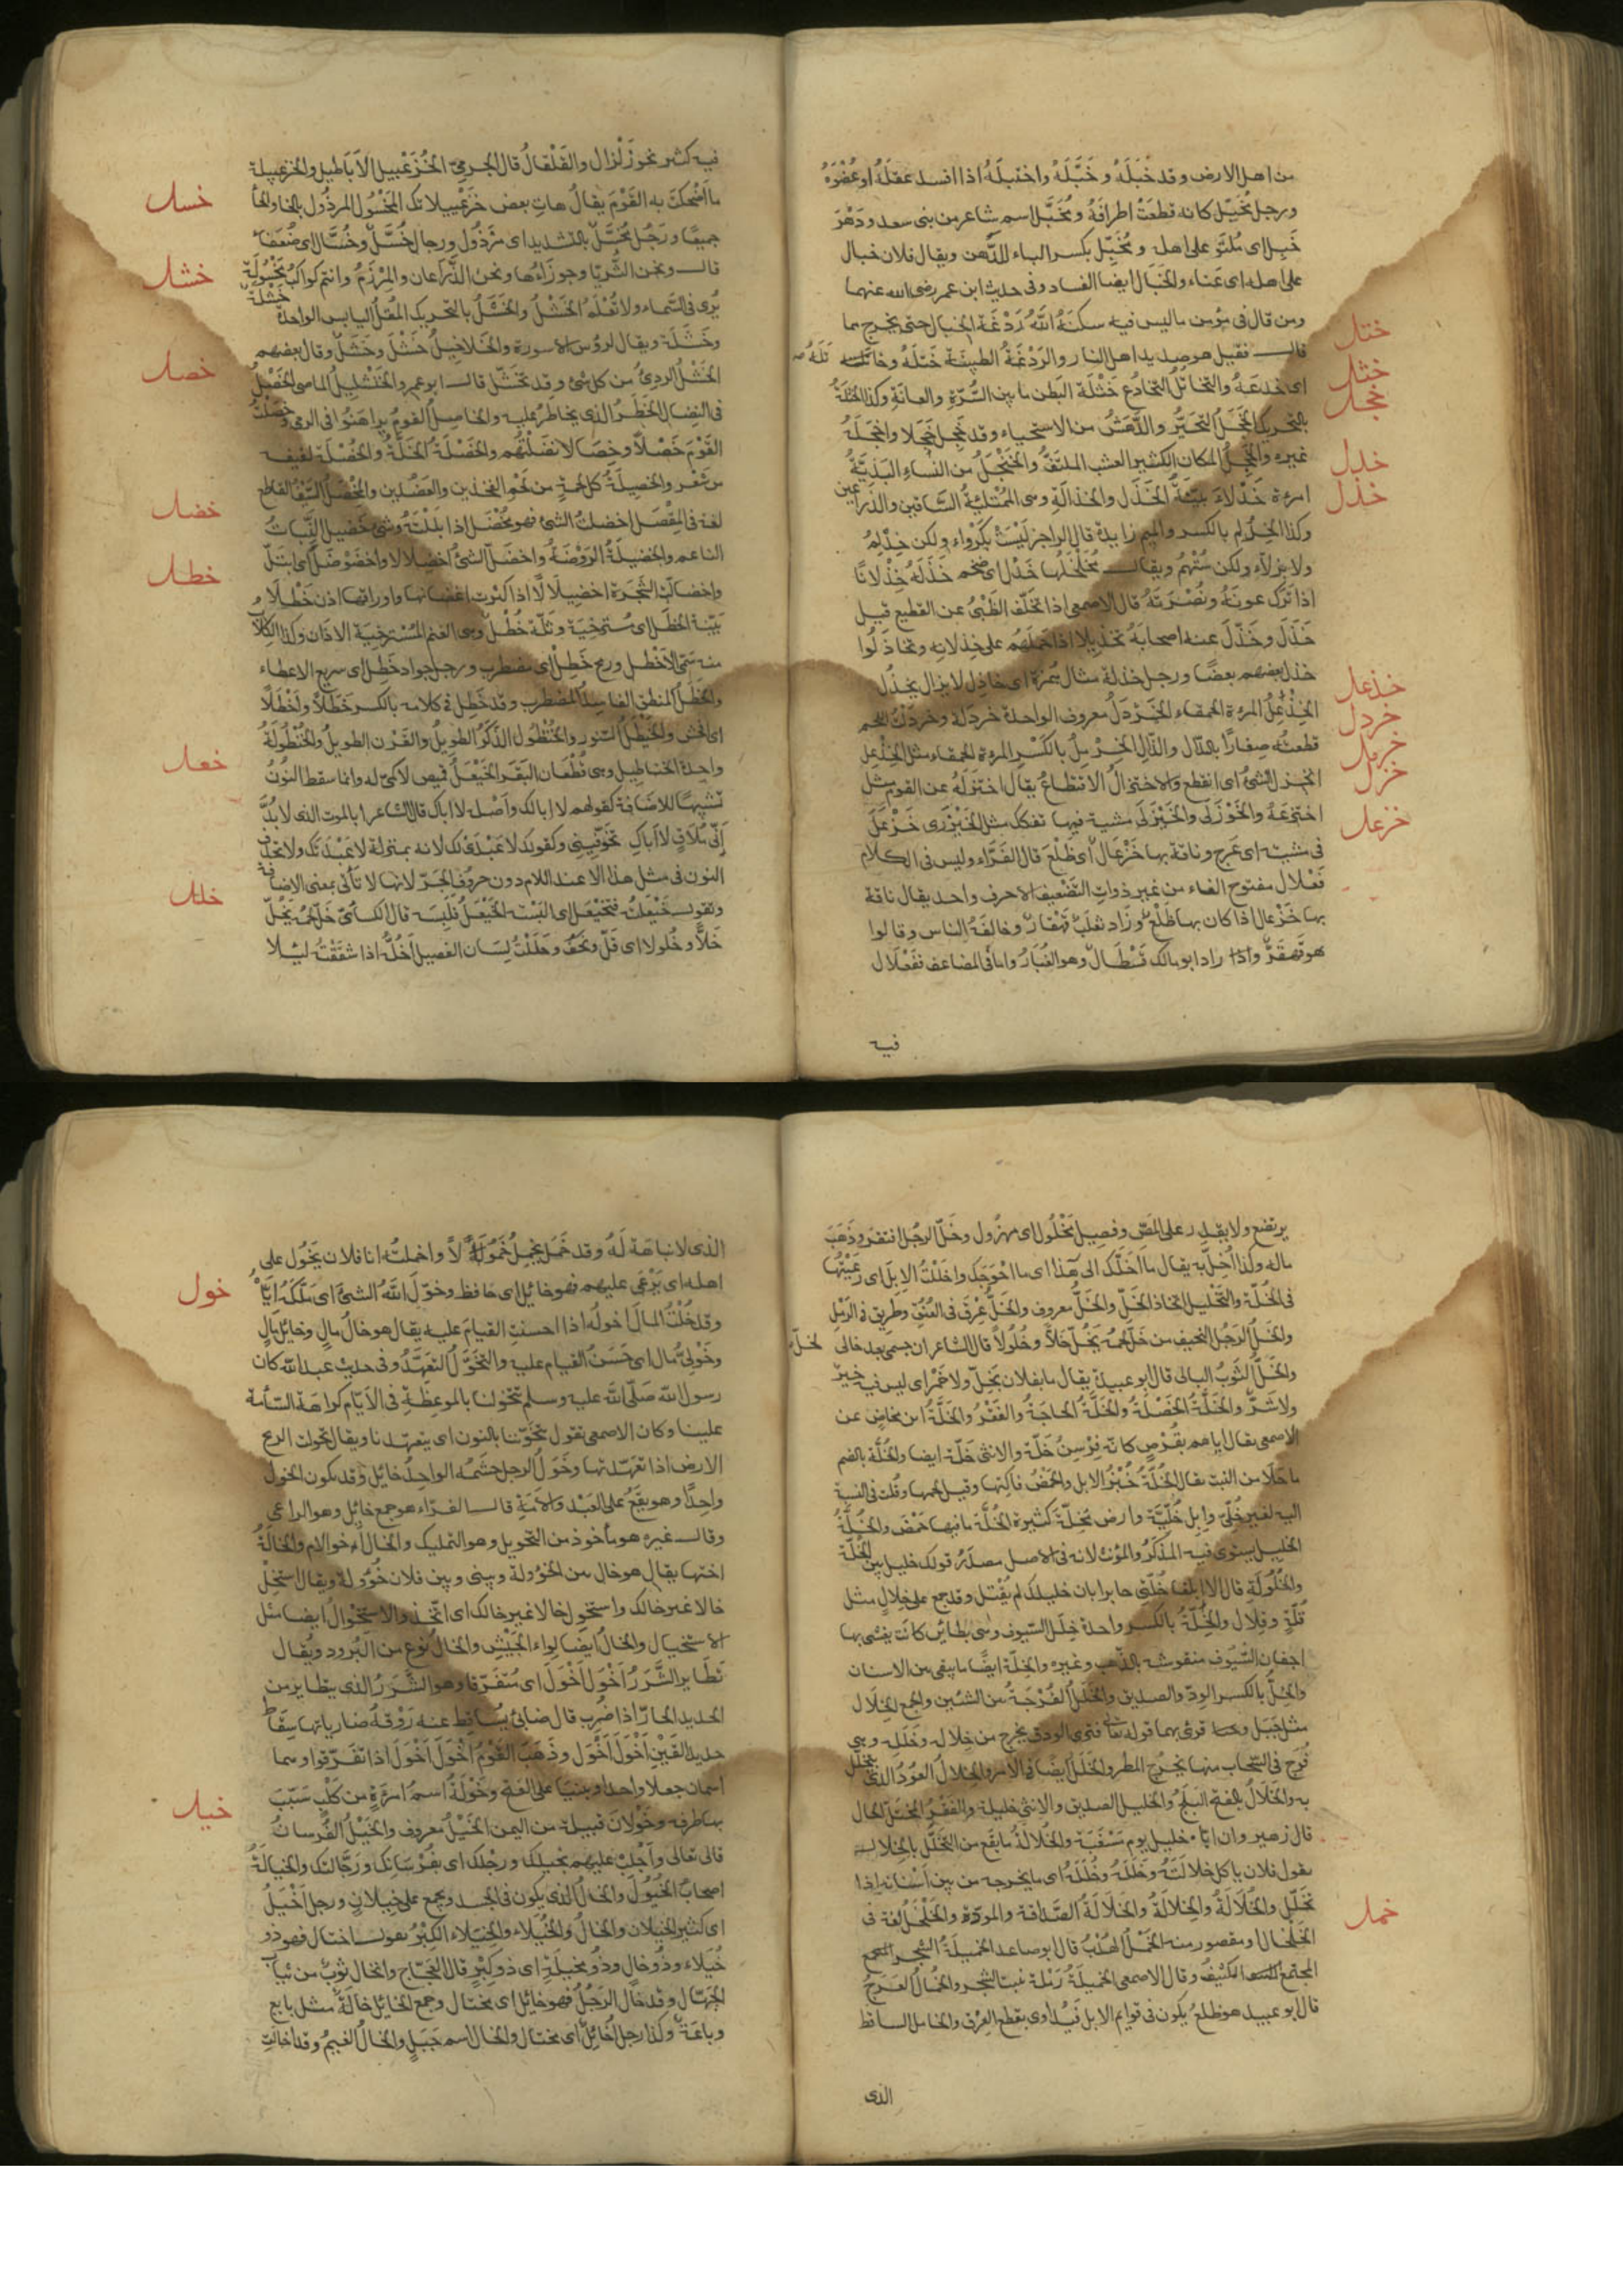 من اهل الارض وقد خَبَلَهُ وخَبَّلَهُ واختبلَهُ اذا افسد عقلَهُ او عُضْوَهُ
ورجل مُخَبَّل كانه قطعَتْ اطرافَهُ ومُخَبَّل اسم شاعر من بنى سعد ودَهْرٌ
خَبِل اى مُلتَوٍ على اهله ومُخَبِّل بكسر الباء للدَّهر ويقال فلان خبال
على اهله اى عَناء والخبَال ايضا الفساد وفى حديث ابن عمر رضى الله عنهما
ومن قال فى مؤمن ما ليس فيه سكنَهُ اللهُ رَدْغَةَ الخبال حتى يخرج مما
قال فقيل هو صديد اهل النار والرَدْغَةُ الطينَة خَتَلَهُ وخاتَلَه
ختل
اى خدعَهُ والتخاتُل التخادُع خَثْلَة البَطن ما بين السُّرّةِ والعانَةِ وكذا الخثَلَةُ
خثل
بالتحريك الخَجَل التحيّر والدَّهَشُ من الاستحياء وقد خَجِل خَجَلا واخجَلَهُ
خجل
غيره والخَجِلُ المكان الكثير العشب الملتفّ والخَنْجَلُ من النساء البَذيَّةُ
امرءة خَدْلة بيّنةُ الخَدَل والخدالَةِ وهى الممْتلئةُ السَّاقين والذراعين
خدل
وكذا الخِدْلِم بالكسر والميم زايدة قال الراجز ليْسَتْ بكَرْواء ولكن خِدْلِمُ
ولا بزلّاء ولكن سُتْهُم ويقال مُخَلْخَلُها خَدْل اى ضخم خَذَلَهُ خِذْلانًا
خذل
اذا تَرَك عونَهُ ونُصْرَتَهُ قال الاصمعى اذا تخلّف الظَبْىُ عن القطيع قيل
خَذَلَ وخَذَّلَ عنه اصحابَهُ تخذيلا اذا حَمَلَهُم على خِذلانه وتخاذَلُوا
خذل بعضهم بعضًا ورجل خذلة مثال هُمَزة اى خاذِل لا يزال يخذُل
الخِذْعِلُ المرءة الحمقاء الخَرْدَلُ معروف الواحدة خردَلة وخردَلْتُ اللحم
خذعل
خردل
قطعته صِغارًا بالدّال والذّال الخِرْمِلُ بالكَسْرِ المرءة الحمقاء مثل الخِذْعِلِ
خرمل
انخزل الشئُ اى انقطع والاختزالُ الاقتطاعُ يقال اختزلَهُ عن القوم مثل
خزل
اختزعَهُ والخَوْزَلى والخَيْزَلى مشية فيها تفكك مثل الخَيْزَرى خَزْعَلَ
خزعل
فى مشيته اى عَرِج وناقة بها خَزْعال اى ظَلْعَ قال الفَرَّاء وليس فى الكلام
فَعْلال مفتوح الفاء من غير ذواتِ التَّضعيف الا حرف واحد يقال ناقة
بها خَزْعال اذا كان بها ظَلْعٌ وزَاد ثعلَبْ قَهْقارٌ وخالفَهُ الناس وقالوا
هو قَهقَرٌّ وزاد ابو مالك قَسْطَال وهو الغُبَارُ واما فى المضاعف ففَعْلال
فيه
فيه كثير نحو زَلْزال والقَلْقالُ قال الجرمىّ الخُزَعْبيل الاَباطيل والخزعبيلة
ما اَضْحكْتَ به القوْمَ يقالُ هاتِ بعض خزَعْبيلاتك المخسُول المرذُول بالخاء والحاء
خسل
جميعًا ورَجُل مُخَسَّل بالتشديد اى مرْذُول ورجال خُسَّل وخُسَّال اى ضُعَفاء
قال ونحن الثُّرَيّا وجوزَاءُها ونحن الذِّرَاعان والمِرْزَمُ وانتم كواكبُ مَخْسُولَة
خشل
يُرى فى السَّماء ولا تُعْلَمُ الخشْلُ والخشَلُ بالتحريك المُقلُ اليابس الواحدة خَشْلَة
وخَشَلَة ويقال لرؤس الاسورة والخلاخيل خَشْل وخَشَل وقال بعضهم
الخَشْلُ الردِئُ من كل شئ وقد تخشّل قال ابو عمرو الخَنْشَليل الماضى الخَصْلُ
خصل
فى النِضال الخَطَرُ الذى يخاطرُ عليه والخاصِل القومُ تراهَنُوا فى الرمى وخصَلْتُ
القَوْمَ خَصْلاً وخِصَالا نضَلْتُهم والخَصْلَةُ الخَلَّةُ والخُصْلَة لفيفـه
من شَعْر والخصيلَةُ كل لحمةٍ من لحم الفخذين والعَضُدين والمِخْصَلُ السَّيْفُ القاطع
لغة فى المِقْصَل اخضلتُ الشئ فهو مُخْضَل اذا بَلَلْتَهُ وشئ خَضيل والنَّبَاتُ
خضل
الناعم والخضيلَةُ الرَوْضَةُ واخضَلّ الشئُ اخضِلالا واخضَوْضَلَ اى ابتَلّ
واخضالّتِ الشَّجَرَة اخضيلالًا اذا كثرت اغصانها واوراقها اذن خَطْلاء
خطل
بَيّنَة الخَطَل اى مُستَرخِيَة وثَلّة خُطْل وهى الغنم المُسْترخِيَة الاذان وكذا الكلاب
منه سُمّى الاَخْطل ورمح خَطِل اى مضطرب ورجل جواد خَطِل اى سريع الاعطاء
والخَطَل المنطق الفاسِدُ المضطرب وقد خَطِل فى كلامه بالكسر خَطَلاً واَخْطَلَ
اى افحش والخَيْطَلُ السّنور والخُنْظُول الذّكَرُ الطويلُ والقَرْن الطويلُ والخُنْطُولَةُ
واحِدة الخناطيل وهى قُطْعان البَقَر الخَيْعَلُ قميص لا كُمّىْ له وانما سقط النُوّنُ
خعل
تشبيهًا للاضافة كقولهم لا ابا لك واَصْله لا اباك قال الشاعر ابالموت الذى لا بُدَّ
اَنّى مُلاقٍ لا اَباكِ تخوّفينى وكقولك لا عَبْدَىْ لك لانه بمنزلة لا عَبْدَيْكَ ولا تحذف
النون فى مثل هذا الا عند اللام دون حروف الجرّ لانها لا تأتى بمعنى الاضافة
وتقول خَيْعَلتُه فتَخَيْعَل اى البَسْته الخَيْعَلَ فلَبِسَه قال الكسائىّ خَلّ لحمُهُ يَخُلّ
خلل
خَلًّا وخُلولا اى قَلّ ونَحُفَ وخَلَلْتُ لِسَان الفصيل اَخُلُّه اذا شقَقْتُه ليلا
يرتضع ولا يقدِر على المَصّ وفصيل مَخْلُول اى مهزول وخَلّ الرجُل افتقر وذَهَبَ
ماله وكذا اُخِلّ به يقال مَا اَخَلّك الى هَذا اى ما احْوَجَك واخلَلْتُ الاِبلَ اى رَعَيْتُها
فى الخُلّة والتَخْليل اتخاذ الخَلّ والخَلّ معروف والخَلُّ عِرْقٌ فى العُنُقِ وطريق فى الرَمْلِ
والخَلّ الرَجُل النحيف من خَلّ لحمُهُ يَخُلّ خَلّاً وخُلُولاً قال الشاعر ان جسمى بعد خالى لخلّ
والخَلّ الثَوبُ البالى قال ابو عبيدة يقال ما بفلان بَخَلّ ولا خَمْر اى ليس فيه خيرٌ
ولا شَرٌّ والخَلَّةُ الخَصْلَةُ والخَلَّةُ الحاجَةُ والفَقْرُ والخَلَّةُ ابن مخاضٍ عن
الاصمعى يقال اتاهم بقُرْصٍ كانه فِرْسِنُ خَلَّة والانثى خَلَّة ايضا والخُلَّة بالضم
ما حَلَا من النبت يقال الخُلّةُ خُبْزُ الابل والحَمْضُ فاكهتها وقيل لحمُها وقُلت فى النسبة
اليه لبعير خُلّىّ وابِل خُلّيّة وارض مُخِلّة كثيرة الخُلّة ما بها حَمْضٌ والخُلّةُ
الخليل يستوى فيه المذكّر والمؤنث لانه فى الاصل مصدَرُ قولك خليل بيّن الخُلّة
والخُلُولَةِ قال الا ابلغا خُلّتى جابرا بان خليلك لم يُقْتل وقد جمع على خِلالٍ مثل
قُلّةٍ وقِلال والخِلّةُ بالكسر واحدة خِلَل السّيوف وهى بطائن كانَت يغشى بها
اجفان السّيوف منقوشة بالذّهب وغيره والخِلّة ايضًا ما يبقى بين الاسنان
والخِلّ بالكسر الودّ والصديق والخَلَلُ الفُرْجَةُ من الشئين والجمع الخِلَال
مثل جَبَل وجبال قرئ بهما قوله تعالى فترى الودق يخرج من خِلاله وخَلَلِه وهى
فُرَج فى السّحاب منها يخرُج المطر والخَلَل ايضًا فى الامر والخِلالُ العوْدُ الذى يتخلّل
به والخَلَالُ بالفتح البَلَحُ والخليل الصديق والانثى خليلة والفَقْرُ المختَلّ الحال
قال زهير وان اتاه خليل يوم مَسْغَبَة والخُلالةُ ما يقَع من التَّخلُّل بالخِلال
يقول فلان يا كل خلالَتَهُ وخَلَلَهُ وخُلَلَهُ اى ما يخرجه من بين اَسْنانه اذا
تخلّل والخَلَالَةُ والخِلالَةُ والخُلَالَةُ الصَّدَاقة والمودّة والخَلْخَل لغة فى
خمل
الخَلْخَال او مقصور منه الخَمْلُ الهُدْبُ قال ابو صاعد الخميلَةُ الشجر
المجتمع الكثيفُ وقال الاصمعى الخميلَةُ رَمْلة تنبت الشجر والخُمالُ العَرَجُ
قال ابو عبيد هو ظلع يكون فى قوايم الابل فيُداوى بقطع العِرْق والخامل الساقط
الذى
الذى لا نباهَة لَهُ وقد خَمَل يَخْمُلُ خُمُولاً واخملتُه انا فلان يَخُول على
اهله اى يَرْعَى عليهم فهو خائل اى حَافظ وخوّل اللهُ الشئَ اى ملّكَهُ ايّاه
خول
وقد خُلْتُ المالَ اخولُه اذا احسنت القيامَ عليه يقال هو خالُ مالٍ وخايل مالٍ
وخَوْلِىُّ مال اى حَسَنُ القيام عليه والتخَوُّل التعهّد وفى حديث عبد الله كان
رسول الله صَلّى اللَه عليه وسلم يتخولنا بالموعِظَةِ فى الاَيّام كراهَة السّأمة
علينا وكان الاصمعى يقول يتخوّننا بالنون اى يتعهّدنا ويقال تخولت الريح
الارض اذا تعَهّدتها وخَوَلُ الرجل حشمُه الواحِدُ خايل وقد يكون الخول
واحِدًا وهو يقَعُ على العَبْد والاَمَةِ قال الفرّاء هو جمع خائل وهو الراعى
وقال غيره هو ماْخوذ من التخويل وهو التمليك والخال اخو الام والخالَةُ
اختها يقال هو خال بين الخؤولة وبينى وبين فلان خؤولة ويقال استخِلْ
خالا غير خالك واستخوِل خالا غير خالك اى اتّخذ والاستخوالُ ايضا مثل
الاستخيال والخالُ ايضًا لِواء الجَيْش والخال نوع من البُرود ويقال
تطَايرَ الشَّرَرُ اَخْوَلَ اَخْوَلَ اى مُتفَرّقا وهو الشَّرَرُ الذى يتطاير من
الحديد الحارّ اذا ضُرِب قال ضابئ يُسَاقِط عنه رَوْقُهُ ضارياتِها سِقَاطَ
حديد القَيْنِ اَخْوَلَ اَخْوَلَ وذَهَبَ القَوْمُ اَخْوَلَ اَخْوَلَ اذا تفرّقوا وهما
اسمان جعلا واحدا وبنيا على الفتح وخَوْلَةُ اسمُ امرَءةٍ من كَلْبٍ شَبّبَ
بها طرفه وخَوْلانُ قبيلة من اليمن الخَيْلُ معروف والخَيْلُ الفُرْسَانُ
خيل
قال تعالى وَاَجْلِبْ عليهم بخيلك ورجلك اى بفُرْسَانِك ورَجّالتك والخيالةُ
اصحابُ الخُيُول والخال الذى يكون فى الجسد ويجمع على خِيلانٍ ورجل اَخْيَلُ
اى كثير الخيلان والخالُ والخُيَلاء والخِيَلاء الكِبْرُ يقول اختال فهو ذو
خُيَلاء وذُو خالٍ وذُو مَخيلَةٍ اى ذو كِبْر قال العَجّاج والخال ثوبٌ من ثياب
الجُهّال وقد خال الرَجُلُ فهو خايل اى مختال وجمع الخايل خالَةٌ مثل بايع
وباعَةٌ وكذا رجل اُخايِل اى مختال والخال اسم جَبَلٍ والخالُ الغيمُ وقد اخالَتِ